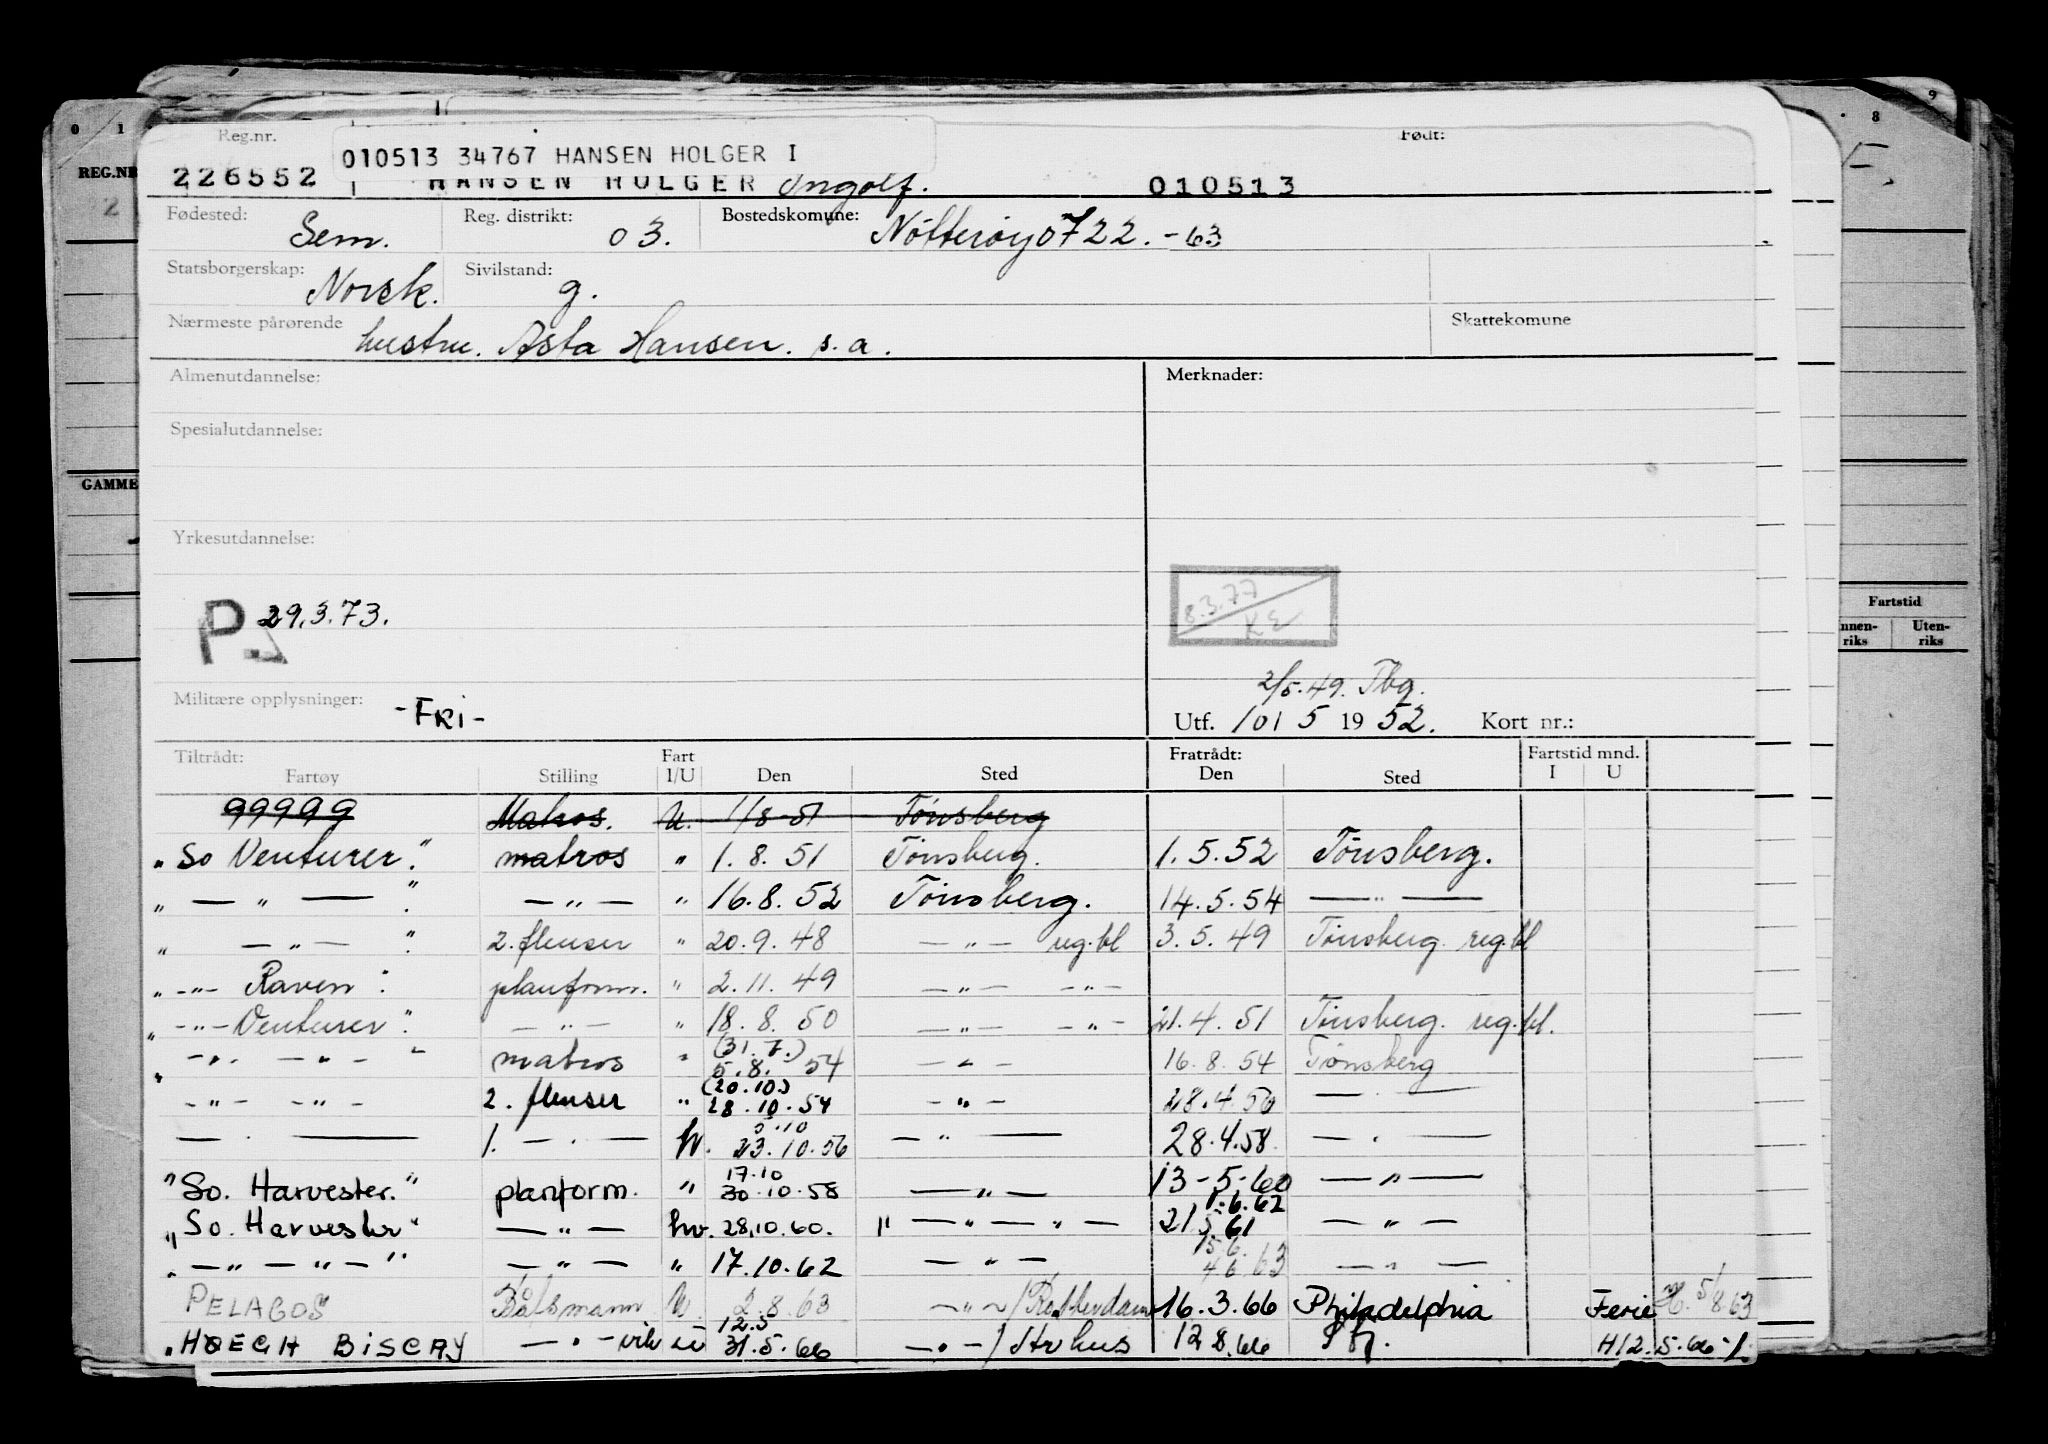 9
0 1 8
Reg.nr. Født:
010513 34767 HANSEN HOLGER I
REG.NR 226552 HANSEN HOLGER Ingolf. 010513
2
Fødested: Sem. Reg. distrikt: 03. Bostedskomune: Nötteröy 0722. -63
Statsborgerskap: Norsk. Sivilstand: g.
Nærmeste pårørende hustru. Asta Hansen. s.a. Skattekomune
Almenutdannelse: Merknader:
Spesialutdannelse:
GAMME
Yrkesutdannelse:
8.3.77
KE
P 29.3.73.
Fartstid
nnen-riks Uten-riks
2/5.49. Tbg.
Militære opplysninger: -FRI- Utf. 101 5 1952. Kort nr.:
Tiltrådt: Fart Fratrådt: Fartstid mnd.
Fartøy Stilling I/U Den Sted Den Sted I U
99999 Matros. U. 1/8-51 Tönsberg
"So Venturer." matros " 1.8.51 Tönsberg. 1.5.52 Tönsberg.
" — " — ." — " — " 16.8.52 Tönsberg. 14.5.54 — " —
" — " — ." 2. flenser " 20.9.48 — " — reg.bl 3.5.49 Tönsberg. reg.bl
" -"- Raven ." planform. " 2.11.49 — " — -"-
" -"- Venturer." — " — " 18.8.50 — " — -"- 21.4.51 Tönsberg. reg.bl.
(31.7.)
" -"- -"- " matros " 5.8. 54 — " — 16.8.54 Tönsberg
(20.10.)
-"- -"- 2. flenser " 28.10.54 — " — 28.4.56 — " —
5.10
— " — 1. — " — hv. 23.10.56 — " — 28.4.58. — " —
17.10
"So. Harvester." planform. " 30.10.58 — " — 13-5-60 — " —
1.6.62
"So. Harvester" — " — hv. 28.10.60. " — " — " — 21.5.61 — " —
15.6.
" — " — " — " — " — " 17.10.62 — " — 4.6.63 — " —
PELAGOS Båtsmann U. 2.8.63 — " — / Rotterdam 16.3.66 Philadelphia Ferie 5/8.63
12.5
"HØEGH BISCAY — " — vik u 31.5.66 — " — / Århus 12.8.66 H12.5.66